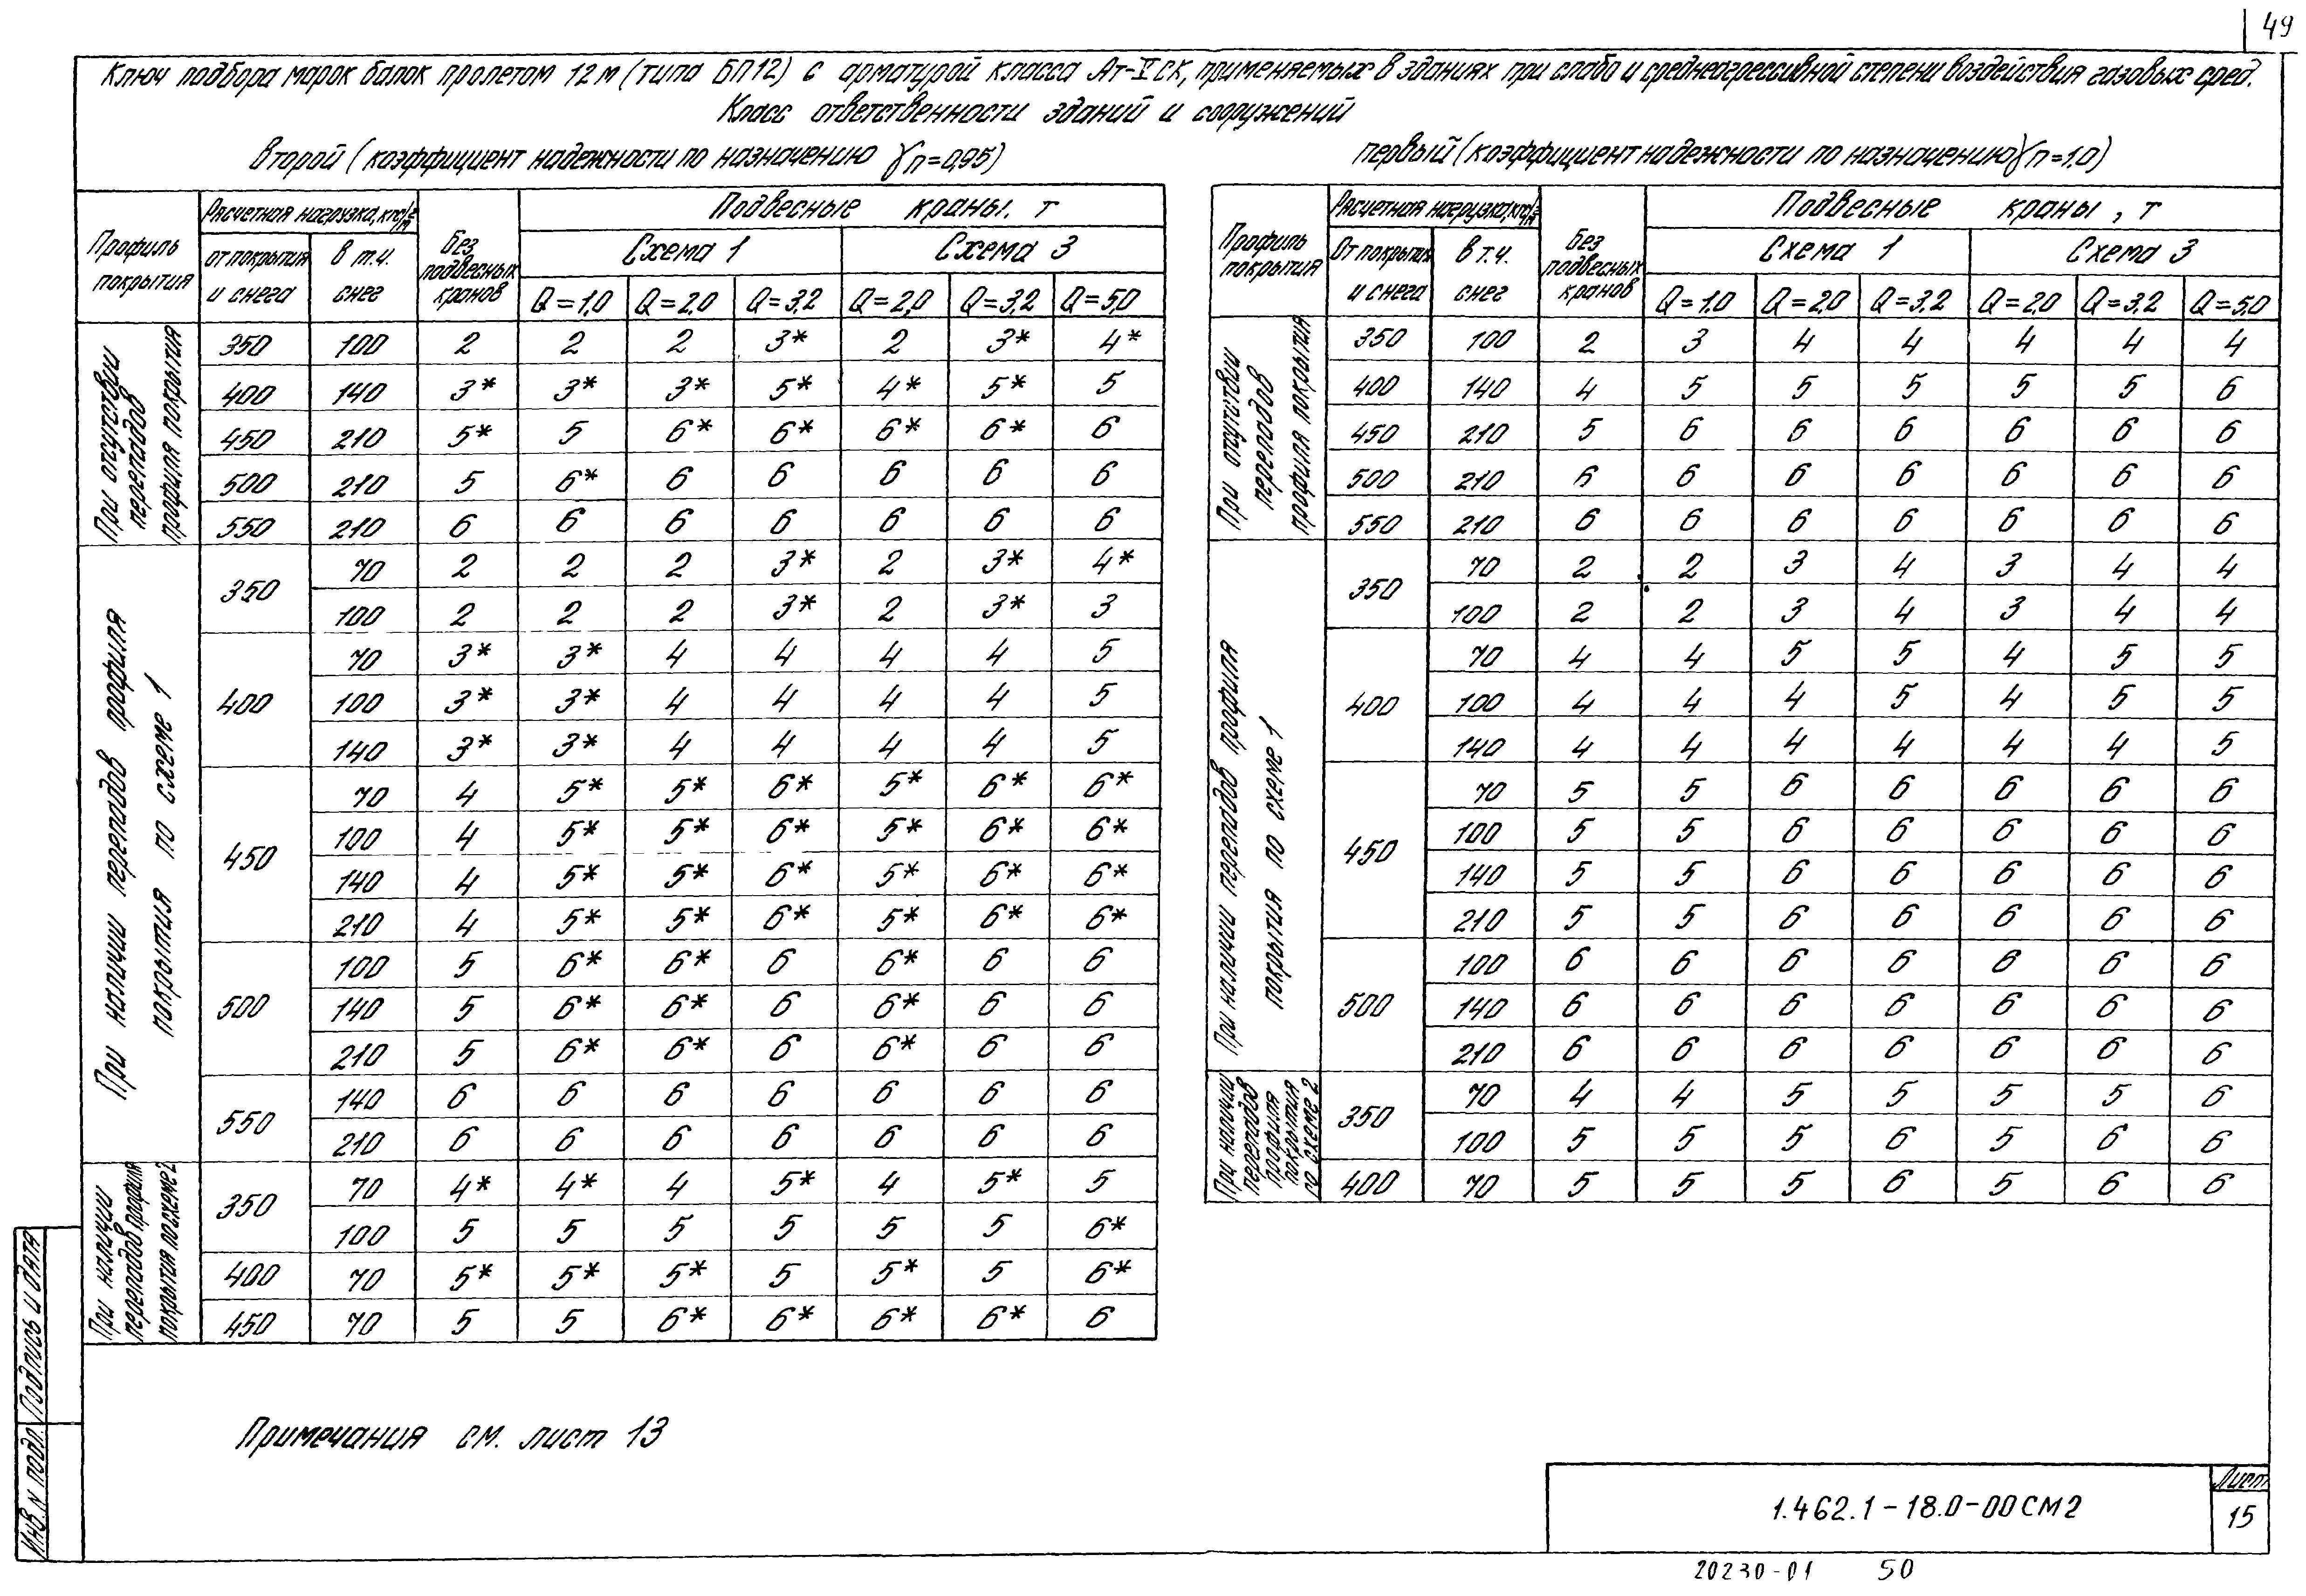 49
Ключ подбора марок балок пролетом 12 м (типа БП12) с арматурой класса Ат-VСК, применяемых в зданиях при слабо и среднеагрессивной степени воздействия газовых сред.
Класс ответственности зданий и сооружений
второй (коэффициент надежности по назначению γп=0,95)
Профиль покрытия
Расчетная нагрузка, кгс/м²
от покрытия и снега
в т.ч. снег
Без подвесных кранов
Подвесные краны, т
Схема 1 Схема 3
Q=1,0 Q=2,0 Q=3,2 Q=2,0 Q=3,2 Q=5,0
При отсутствии перепадов профиля покрытия
350 100 2 2 2 3* 2 3* 4*
400 140 3* 3* 3* 5* 4* 5* 5
450 210 5* 5 6* 6* 6* 6* 6
500 210 5 6* 6 6 6 6 6
550 210 6 6 6 6 6 6 6
При наличии перепадов профиля покрытия по схеме 1
350 70 2 2 2 3* 2 3* 4*
100 2 2 2 3* 2 3* 3
400 70 3* 3* 4 4 4 4 5
100 3* 3* 4 4 4 4 5
140 3* 3* 4 4 4 4 5
450 70 4 5* 5* 6* 5* 6* 6*
100 4 5* 5* 6* 5* 6* 6*
140 4 5* 5* 6* 5* 6* 6*
210 4 5* 5* 6* 5* 6* 6*
500 100 5 6* 6* 6 6* 6 6
140 5 6* 6* 6 6* 6 6
210 5 6* 6* 6 6* 6 6
550 140 6 6 6 6 6 6 6
210 6 6 6 6 6 6 6
При наличии перепадов профиля покрытия по схеме 2
350 70 4* 4* 4 5* 4 5* 5
100 5 5 5 5 5 5 6*
400 70 5* 5* 5* 5 5* 5 6*
450 70 5 5 6* 6* 6* 6* 6
первый (коэффициент надежности по назначению γп=1,0)
Профиль покрытия
Расчетная нагрузка, кгс/м²
От покрытия и снега
в т.ч. снег
Без подвесных кранов
Подвесные краны, т
Схема 1 Схема 3
Q=1,0 Q=2,0 Q=3,2 Q=2,0 Q=3,2 Q=5,0
При отсутствии перепадов профиля покрытия
350 100 2 3 4 4 4 4 4
400 140 4 5 5 5 5 5 6
450 210 5 6 6 6 6 6 6
500 210 6 6 6 6 6 6 6
550 210 6 6 6 6 6 6 6
При наличии перепадов профиля покрытия по схеме 1
350 70 2 2 3 4 3 4 4
100 2 2 3 4 3 4 4
400 70 4 4 5 5 4 5 5
100 4 4 4 5 4 5 5
140 4 4 4 4 4 4 5
450 70 5 5 6 6 6 6 6
100 5 5 6 6 6 6 6
140 5 5 6 6 6 6 6
210 5 5 6 6 6 6 6
500 100 6 6 6 6 6 6 6
140 6 6 6 6 6 6 6
210 6 6 6 6 6 6 6
При наличии перепадов профиля покрытия по схеме 2
350 70 4 4 5 5 5 5 6
100 5 5 5 6 5 6 6
400 70 5 5 5 6 5 6 6
Примечания см. лист 13
Инв. № подл. Подпись и дата
1.462.1-18.0-00СМ2
Лист
15
20230-01 50